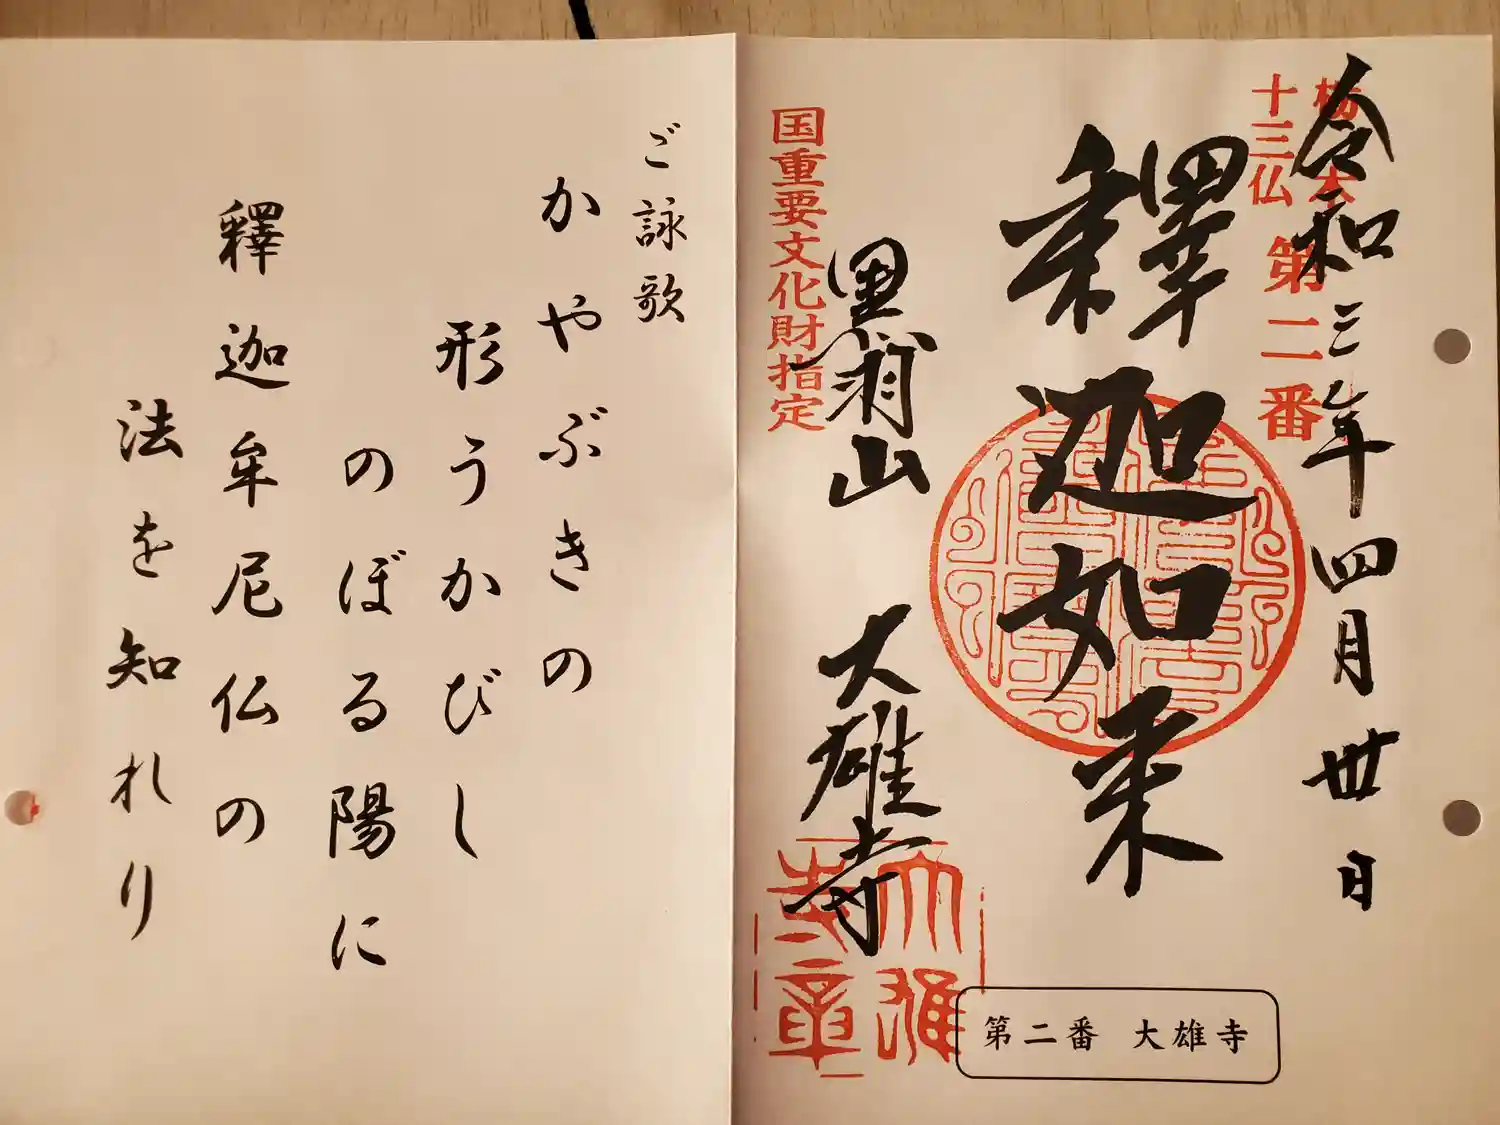 令和三年四月卅日
栃木
十三仏
第二番
釋迦如来
黒羽山 大雄寺
国重要文化財指定
大雄
寺章
第二番 大雄寺
ご詠歌
かやぶきの
形うかびし
のぼる陽に
釋迦牟尼仏の
法を知れり